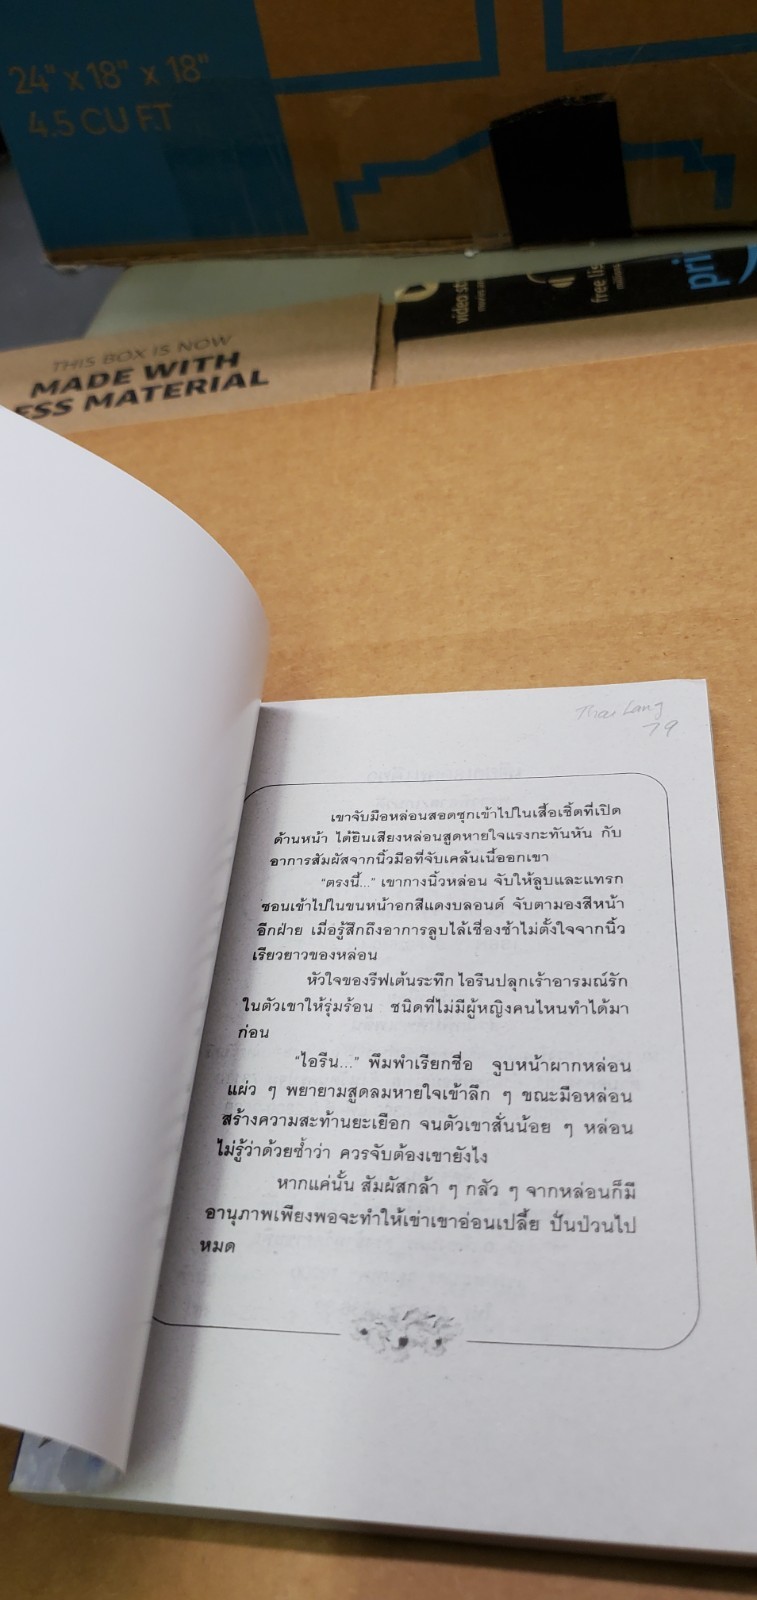 24" x 18" x 18"
4.5 CU FT
video st
free lis
pri
THIS BOX IS NOW
MADE WITH
ESS MATERIAL
Thai Lang
79
เขาจับมือหล่อนสอดซุกเข้าไปในเสื้อเชิ้ตที่เปิด
ด้านหน้า ได้ยินเสียงหล่อนสูดหายใจแรงกะทันหัน กับ
อาการสัมผัสจากนิ้วมือที่จับเคล้นเนื้ออกเขา
"ตรงนี้..." เขากางนิ้วหล่อน จับให้ลูบและแทรก
ซอนเข้าไปในขนหน้าอกสีแดงบลอนด์ จับตามองสีหน้า
อีกฝ่าย เมื่อรู้สึกถึงอาการลูบไล้เชื่องช้าไม่ตั้งใจจากนิ้ว
เรียวยาวของหล่อน
หัวใจของรีฟเต้นระทึก ไอรีนปลุกเร้าอารมณ์รัก
ในตัวเขาให้รุ่มร้อน ชนิดที่ไม่มีผู้หญิงคนไหนทำได้มา
ก่อน
"ไอรีน..." พึมพำเรียกชื่อ จูบหน้าผากหล่อน
แผ่ว ๆ พยายามสูดลมหายใจเข้าลึก ๆ ขณะมือหล่อน
สร้างความสะท้านยะเยือก จนตัวเขาสั่นน้อย ๆ หล่อน
ไม่รู้ว่าด้วยซ้ำว่า ควรจับต้องเขายังไง
หากแค่นั้น สัมผัสกล้า ๆ กลัว ๆ จากหล่อนก็มี
อานุภาพเพียงพอจะทำให้เข่าเขาอ่อนเปลี้ย ปั่นป่วนไป
หมด